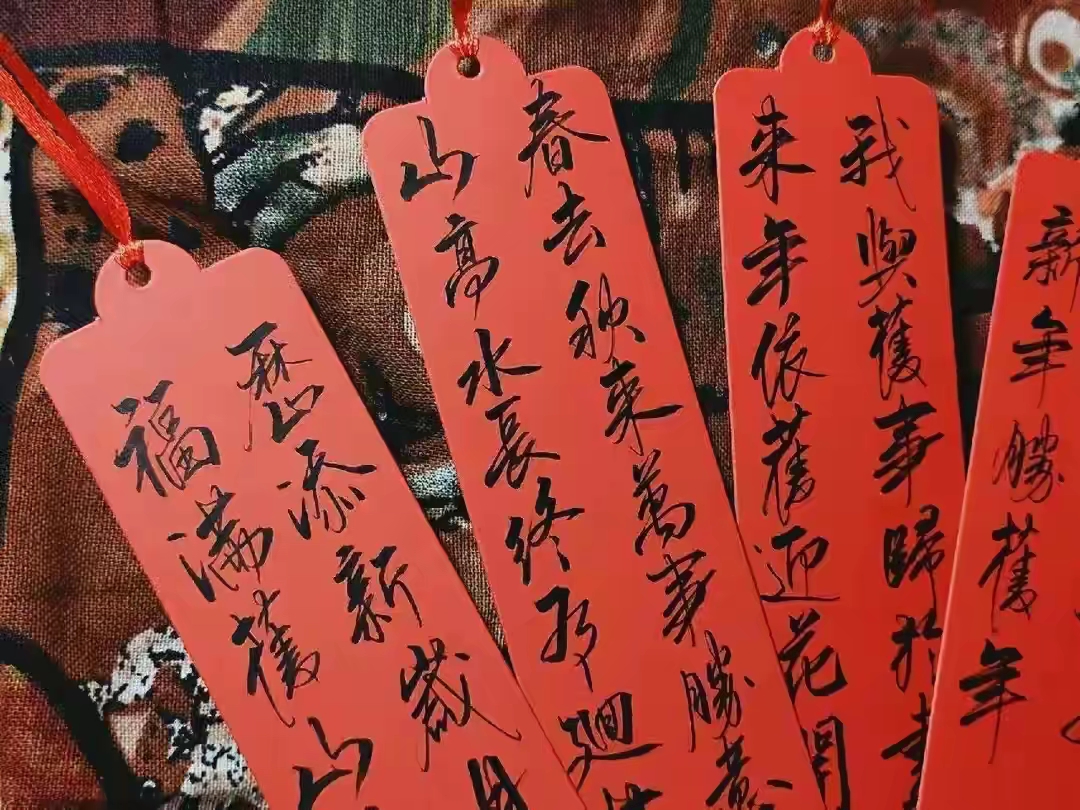 歷添新歲
福滿舊山
春去秋來萬事勝意
山高水長終有迴
我與舊事歸於
來年依舊迎花開
新年勝舊年